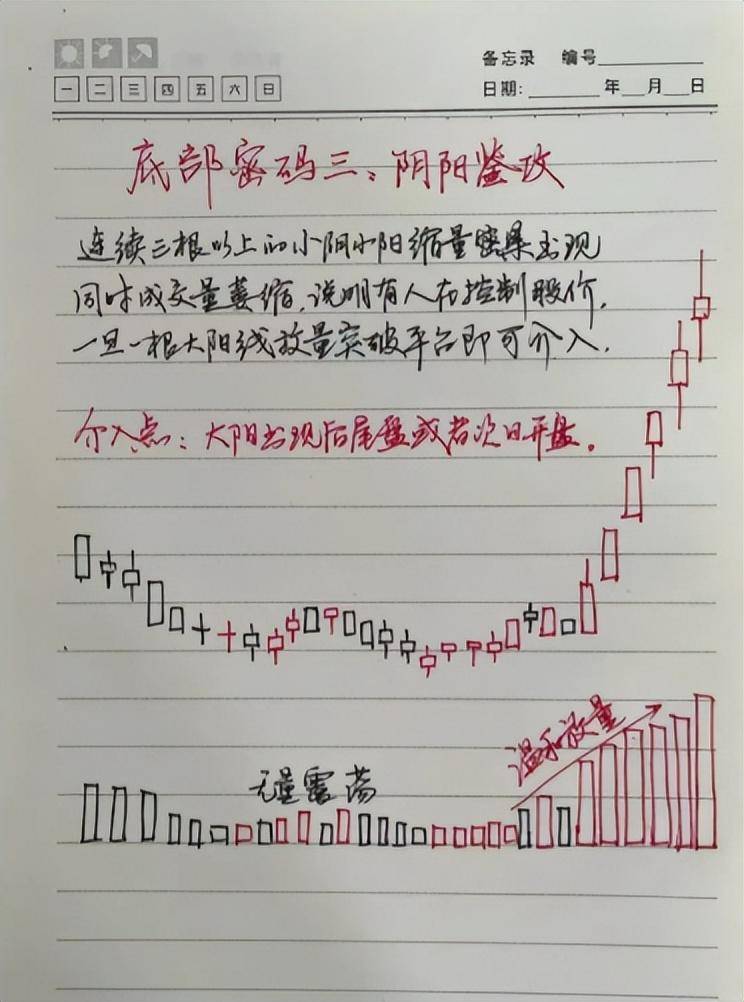 备忘录 编号
一 二 三 四 五 六 日
日期: 年 月 日
底部密码三：阴阳鉴攻
连续三根以上的小阴小阳缩量密集出现
同时成交量萎缩，说明有人在控制股价，
一旦一根大阳线放量突破平台即可介入.
介入点：大阳出现后尾盘或者次日开盘。
温和放量
无量震荡